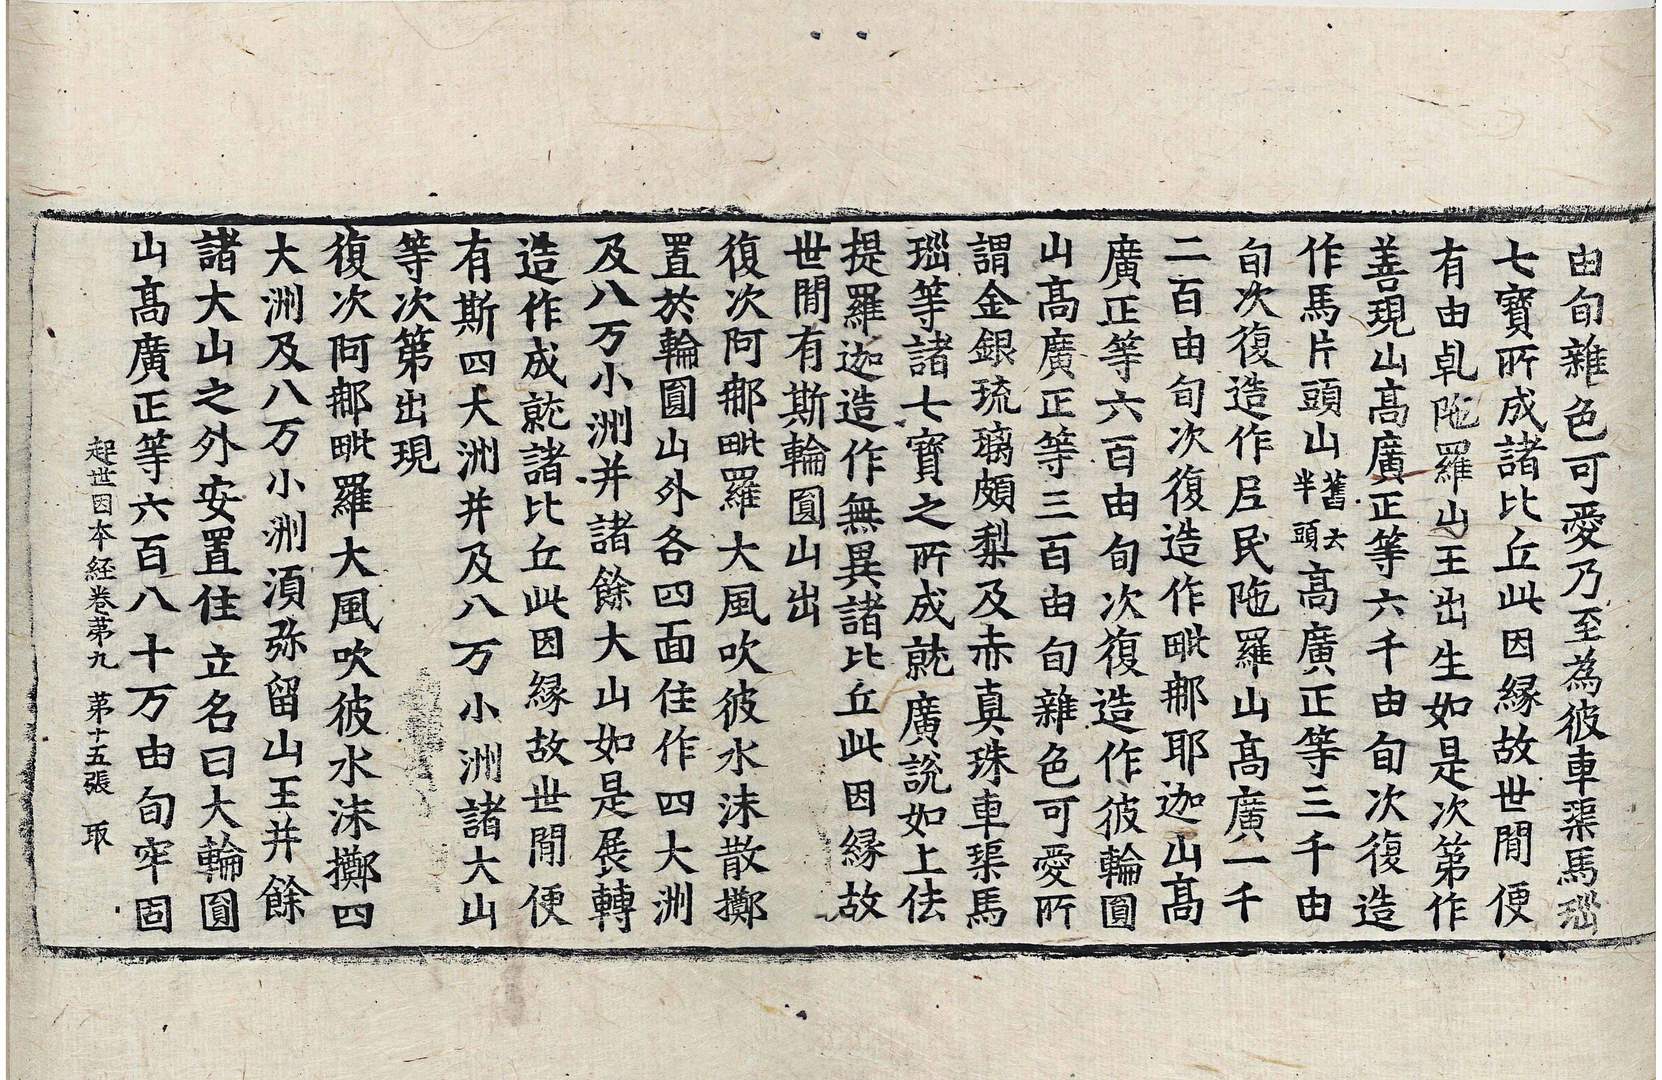 由旬雜色可愛乃至為彼車璖馬瑙
七寶所成諸比丘此因縁故世閒便
有由乹陁羅山王出生如是次第作
善現山髙廣正等六千由旬次復造
作馬片頭山舊云半頭髙廣正等三千由
旬次復造作𡰱民陁羅山髙廣一千
二百由旬次復造作毗那耶迦山髙
廣正等六百由旬次復造作彼輪圓
山髙廣正等三百由旬雜色可愛所
謂金銀琉璃頗梨及赤真珠車璖馬
瑙等諸七寶之所成就廣說如上佉
提羅迦造作無異諸比丘此因縁故
世閒有斯輪圓山出
復次阿那毗羅大風吹彼水沫散擲
置於輪圓山外各四面住作四大洲
及八万小洲并諸餘大山如是展轉
造作成就諸比丘此因縁故世閒便
有斯四大洲并及八万小洲諸大山
等次第出現
復次阿那毗羅大風吹彼水沫擲四
大洲及八万小洲湏弥留山王并餘
諸大山之外安置住立名曰大輪圓
山髙廣正等六百八十万由旬牢固
起世因本経卷苐九 苐十五張 取